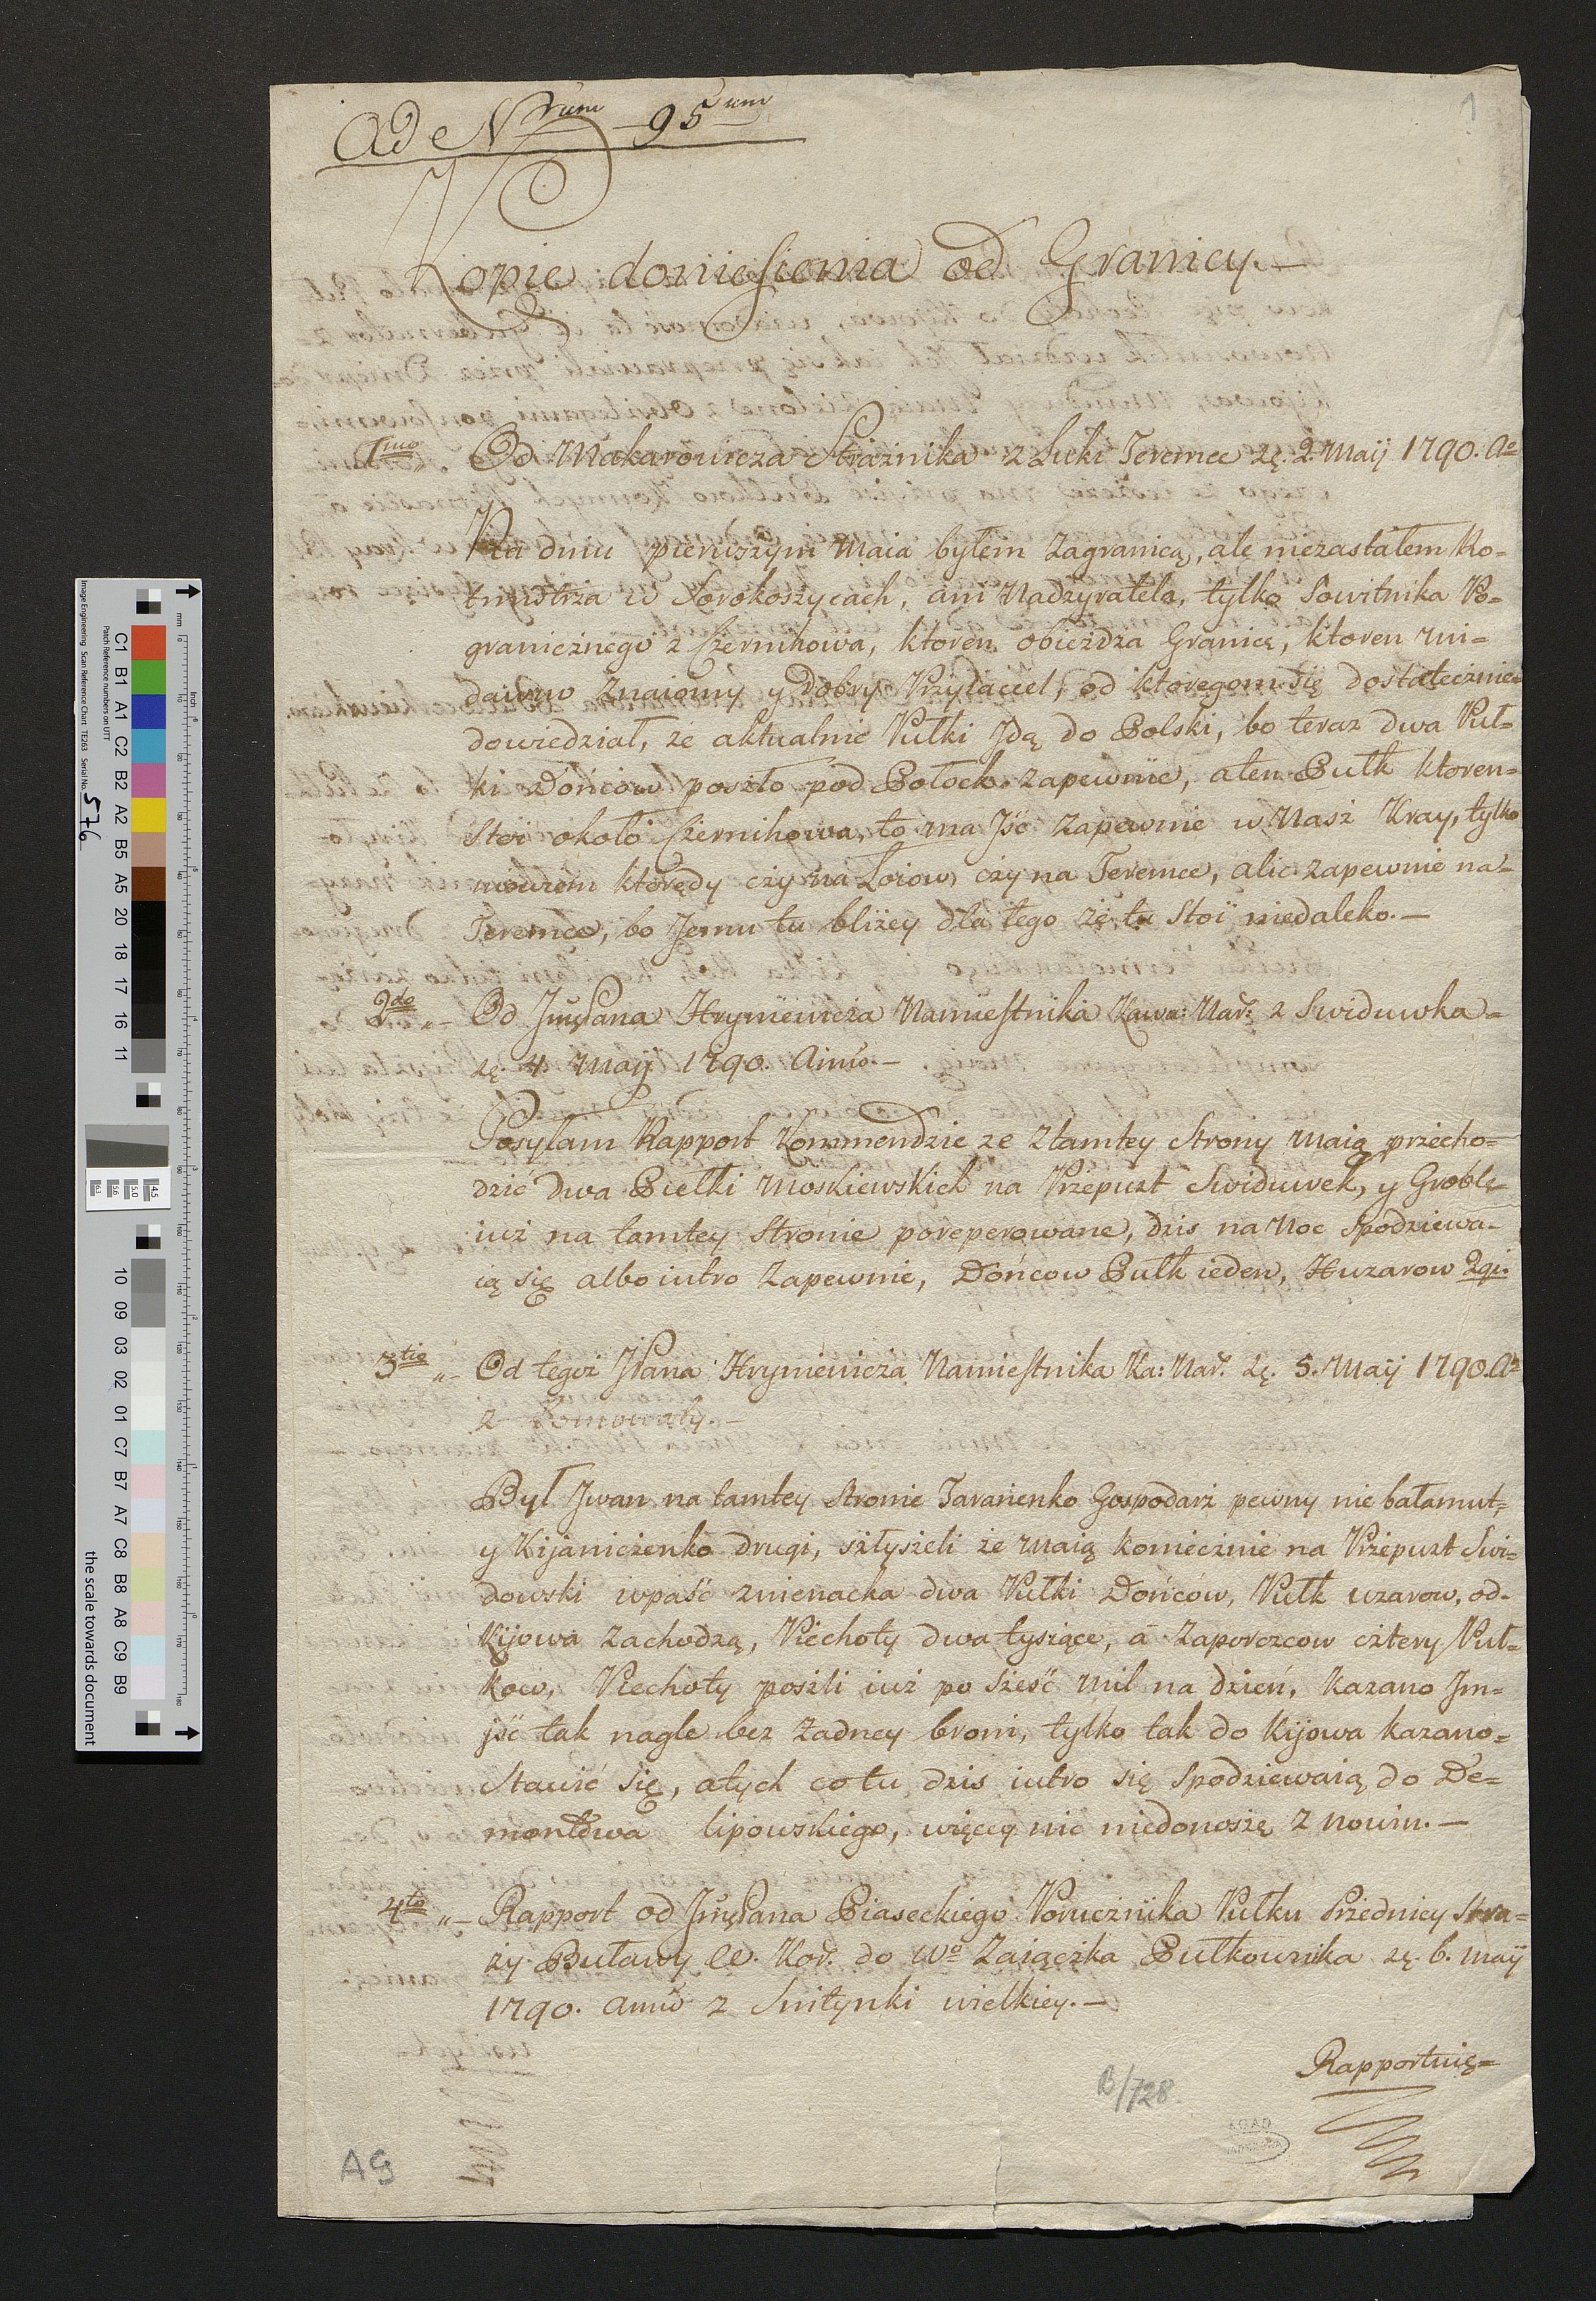 Ad Nrum 95um
1
Kopie doniesienia od Granicy.—
1mo „ Od Makarowicza Strażnika z Łuki Teremce zę. 2. Maij 1790. Ao
Na dniu pierwszym Maia byłem Zagranicą, ale niezastałem Ro-
tmistrza w Sorokoszycach, ani Nadzyratela, tylko Sowitnika Po-
granicżnego z Czernihowa, ktoren obieżdza Granicę, ktoren mi-
dawno Znaiomy y Dobry Przyiaciel, od ktoregom się dostatecżnie=
dowiedział, że aktualnie Pułki Jdą do Polski, bo teraz dwa Puł-
ki Dońcow poszło pod Połock zapewnie, aten Pułk ktoren=
Stoi około Czernihowa, to ma Jść Zapewnie w Nasz Kray, tylko
niewiem ktorędy cży na Łoiow, cży na Teremce, alic zapewnie na=
Teremce, bo Jemu tu bliżey dla tego żę tu Stoï niedaleko.—
2do „— Od JmęPana Hryniewicża Namiestnika Kawa: Nar: z Swiduwka=
zę. 4. Maij 1790. Anno.—
Posyłam Rapport Kommendzie ze Ztamtey Strony Maią przecho=
dzić Dwa Pułki Moskiewskich na Przepuzt Swiduwek, y Groble
iuż na tamtey Stronie poreperowane, dzis na Noc Spodziewa-
ią się albo iutro Zapewnie, Dońcow Pułk ieden, Huzarow 2gi.
3tio „— Od tegoż JPana Hryniewicża Namiestnika Ka: Nar. zę. 5. Maij 1790. Ao
z
Był Jwan na tamtey Stronie Taranenko Gospodarż pewny nie bałamut,
y Kijanicżenko drugi, szłyszeli że Maią koniecżnie na Przepuzt Swi=
dowski wpaść znienacka dwa Pułki Dońcow, Pułk uzarow, od-
Kijowa Zachodzą, Piechoty dwa tysiące, a Zaporozcow cżtery Puł=
kow, Piechoty poszli iuż po Sześć Mil na dzień, Kazano Jm=
jść tak nagle bez Żadney broni, tylko tak do Kijowa kazano=
Stawić się, atych co tu dzis iutro się Spodziewaią do De=
montowa lipowskiego, więcey nic niedonoszę z nowin.—
4to „— Rapport od JmęPana Piaseckiego Porucżnika Pułku Przedniey Stra=
ży Buławy W. Kor. do Wo Zaiącżka Pułkownika zę. 6. Maij
1790. Anno z Snitynki wielkiey.—
Rapportuię=
B/728.
AGAD
AG